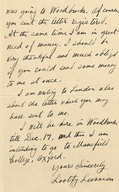 was going to Woodbrooke. Of course
you sent the letter registered.
At the same time I am in great
need of money. I should be
very thankful and much obliged
if you could send some money
to me at once.
I am writing to London also
about the letter which you may
have sent to me.
I will be here in Woodbrooke
till Dec. 17, and then I am
intending to go to Mansfield
College, Oxford.
Yours sincerely